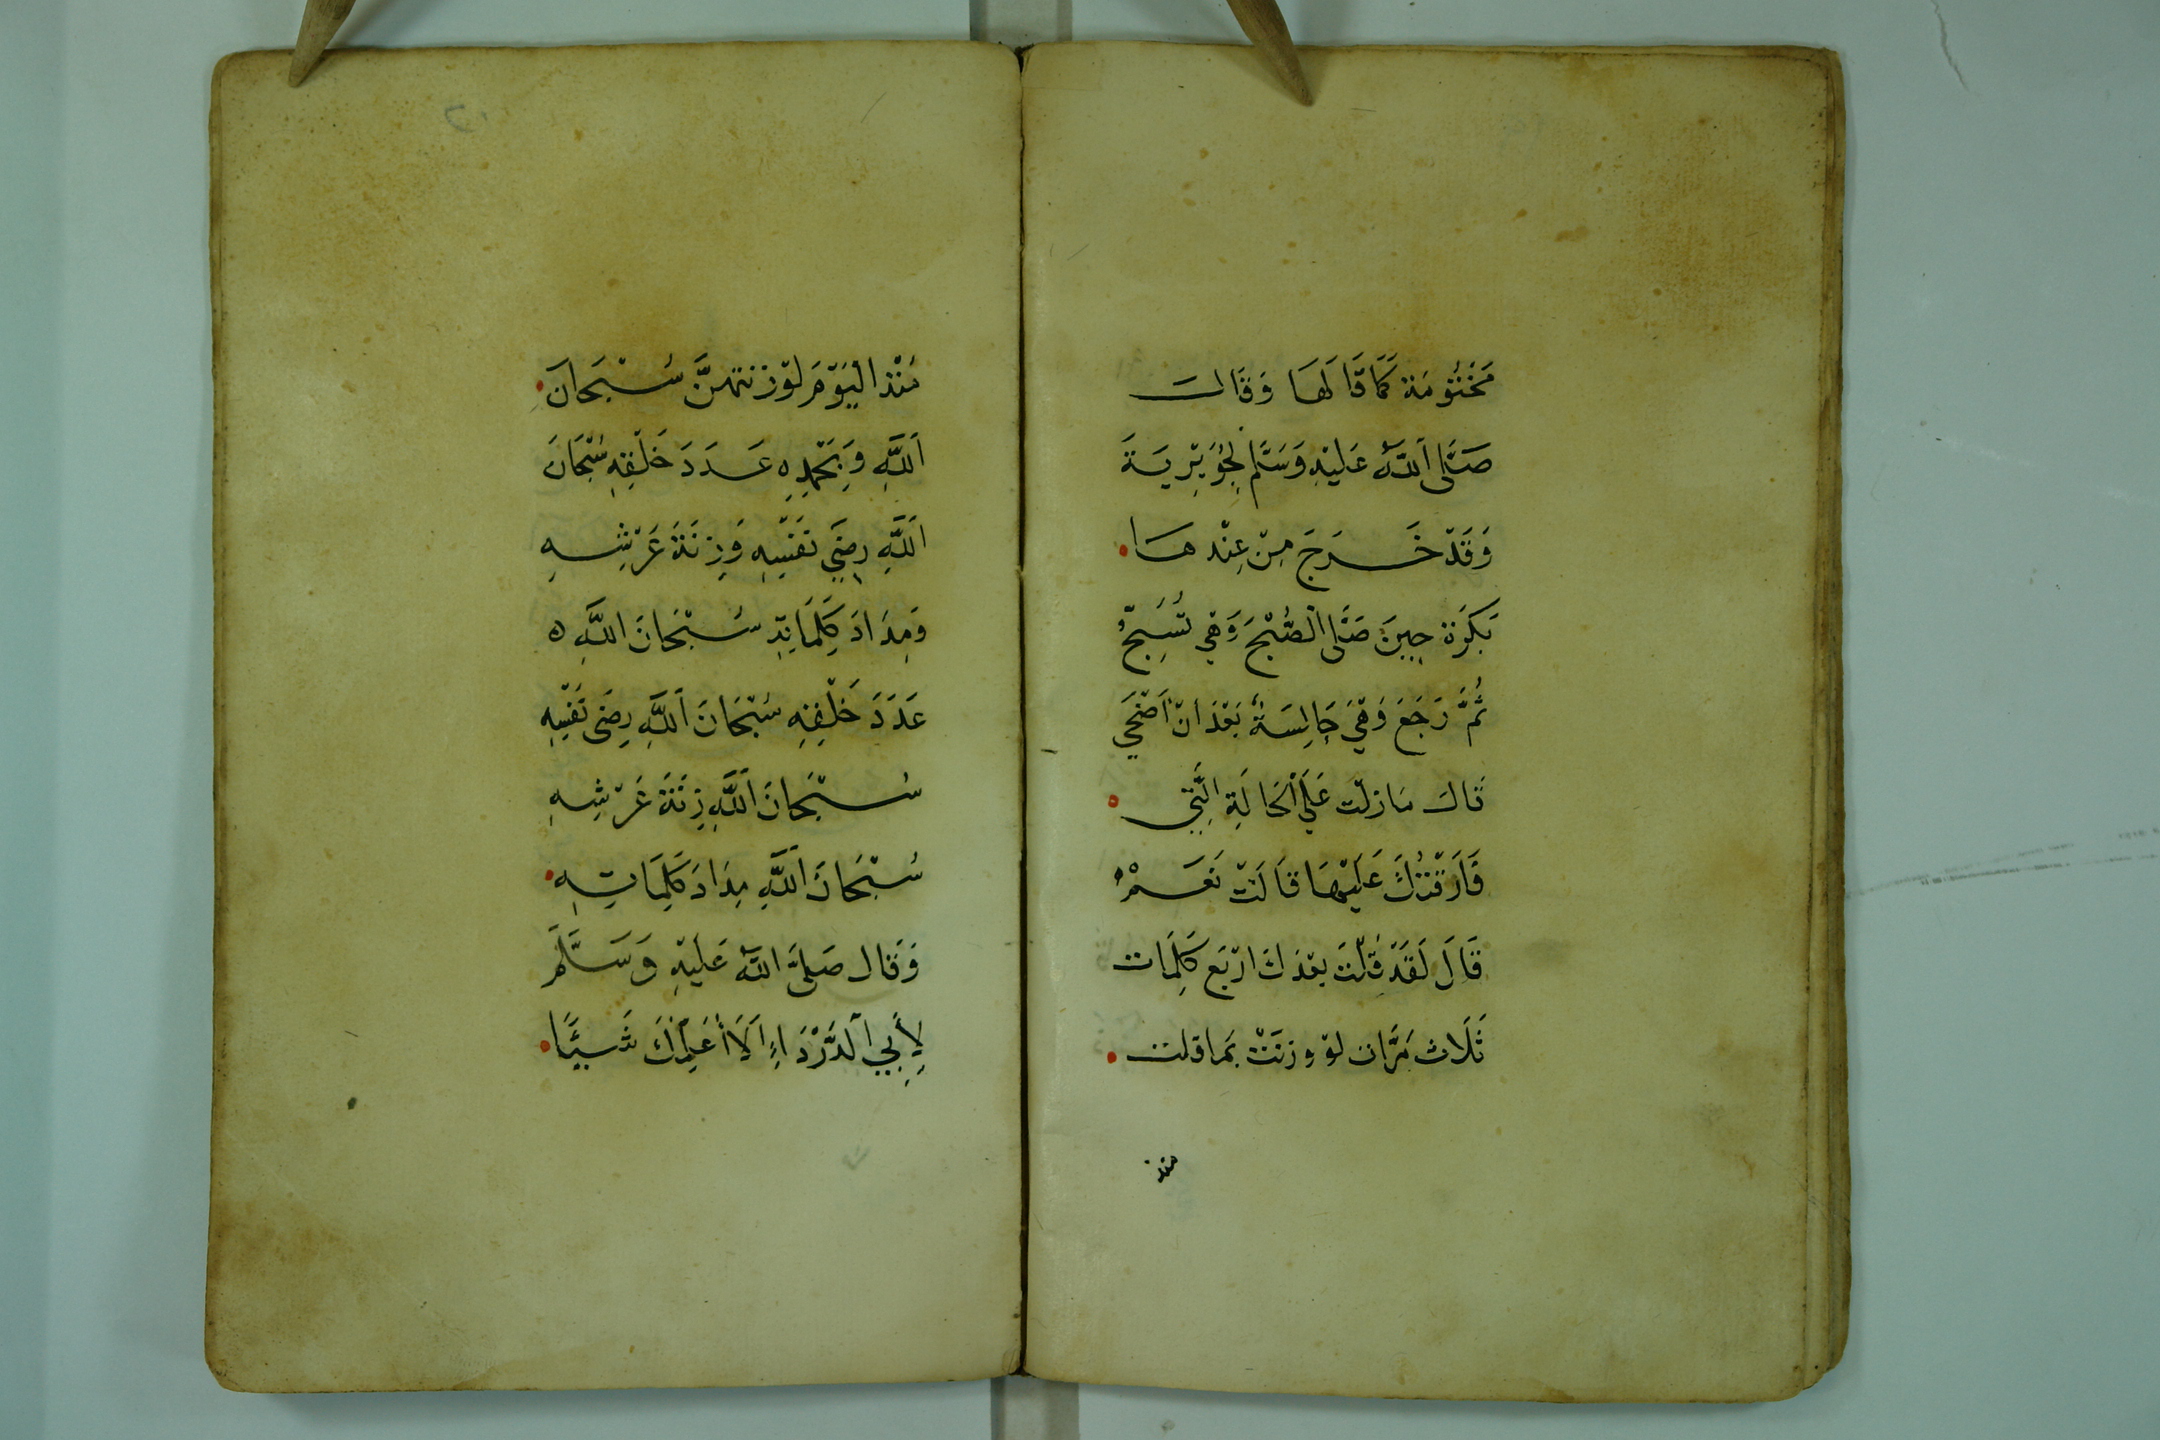 مَخْتُومَة كَمَا قَالَهَا وَقَالَ
صَلَّى اَللَّهُ عَلَيْهِ وَسَلَّم لِجُوَيْرِيَةَ
وَقَدْ خَرَجَ مِنْ عِنْدهَا
بَكْرَة حِينَ صَلَّى الْصُّبْحَ وَهِي تُسَبِّحُ
ثُمَّ رَجَعَ وَهِيَ جَالِسَةٌ بَعْدَ انْ اَضْحَي
قَالَ مَا زلْت عَلَي اَلْحَالَةِ الَّتِي
فَارَقْتُكَ عَلَيْهَا قَالَتْ نَعَمْ
قَالَ لَقَدْ قُلْتَ بعْدَكَ ارْبَع كَلِمَات
ثَلَاث مَرَّات لوْ وزنَتْ بمَا قلت
منذ
مُنْذ الْيَوْمَ لوْزنتهنَّ سُبْحَانَ
اَللَّهِ وَبِحَمْدِهِ عَدَدَ خَلْقِهِ سُبْحَانَ
اَللَّهِ رِضَي نَفْسِهِ وَزِنَةَ عَرْشِهِ
وَمِدَادَ كَلِمَاتِهِ سُبْحَانَ اللَّهِ
عَدَدَ خَلْقِهِ سُبْحَانَ اَللَّهِ رِضَى نَفْسِهِ
سُبْحَانَ اَللَّهِ زِنَةَ عَرْشِهِ
سُبْحَانَ اَللَّهِ مِدَادَ كَلِمَاتِهِ
وَقَال صَلىَّ اللَّهُ عَلَيْهِ وَسَلَّمَ
لِأَبِي اَلدَّرْدَاءِ اَلَا أُعَلِّمُكَ شَيْئًا